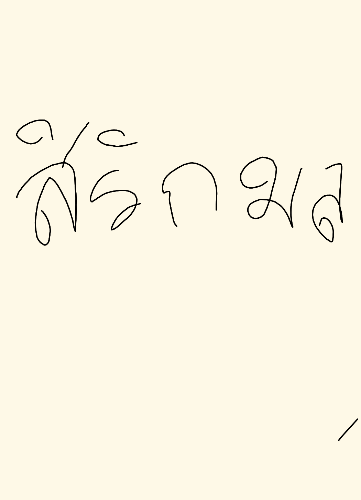 สิริกมล